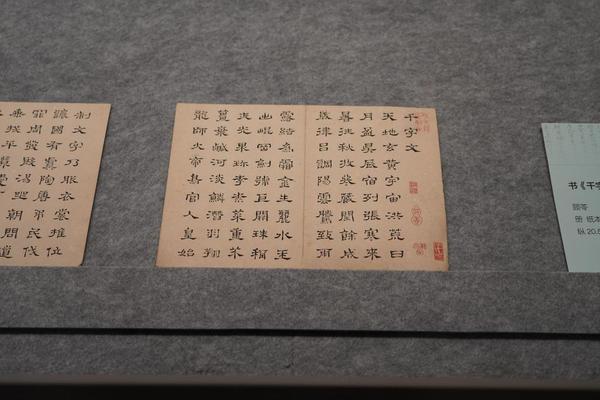 千字文
天地玄黄宇宙洪荒日
月盈昃辰宿列張寒來
暑往秋收冬藏閏餘成
歲律呂調陽雲騰致雨
露結為霜金生麗水玉
出崐岡劍號巨闕珠稱
夜光果珍李柰菜重芥
薑海鹹河淡鱗潛羽翔
龍師火帝鳥官人皇始
制文字乃服衣裳推位
讓國有虞陶唐弔民伐
罪周發殷湯坐朝問道
垂拱平章
书《千字
顾苓
册 纸本
纵 20.5